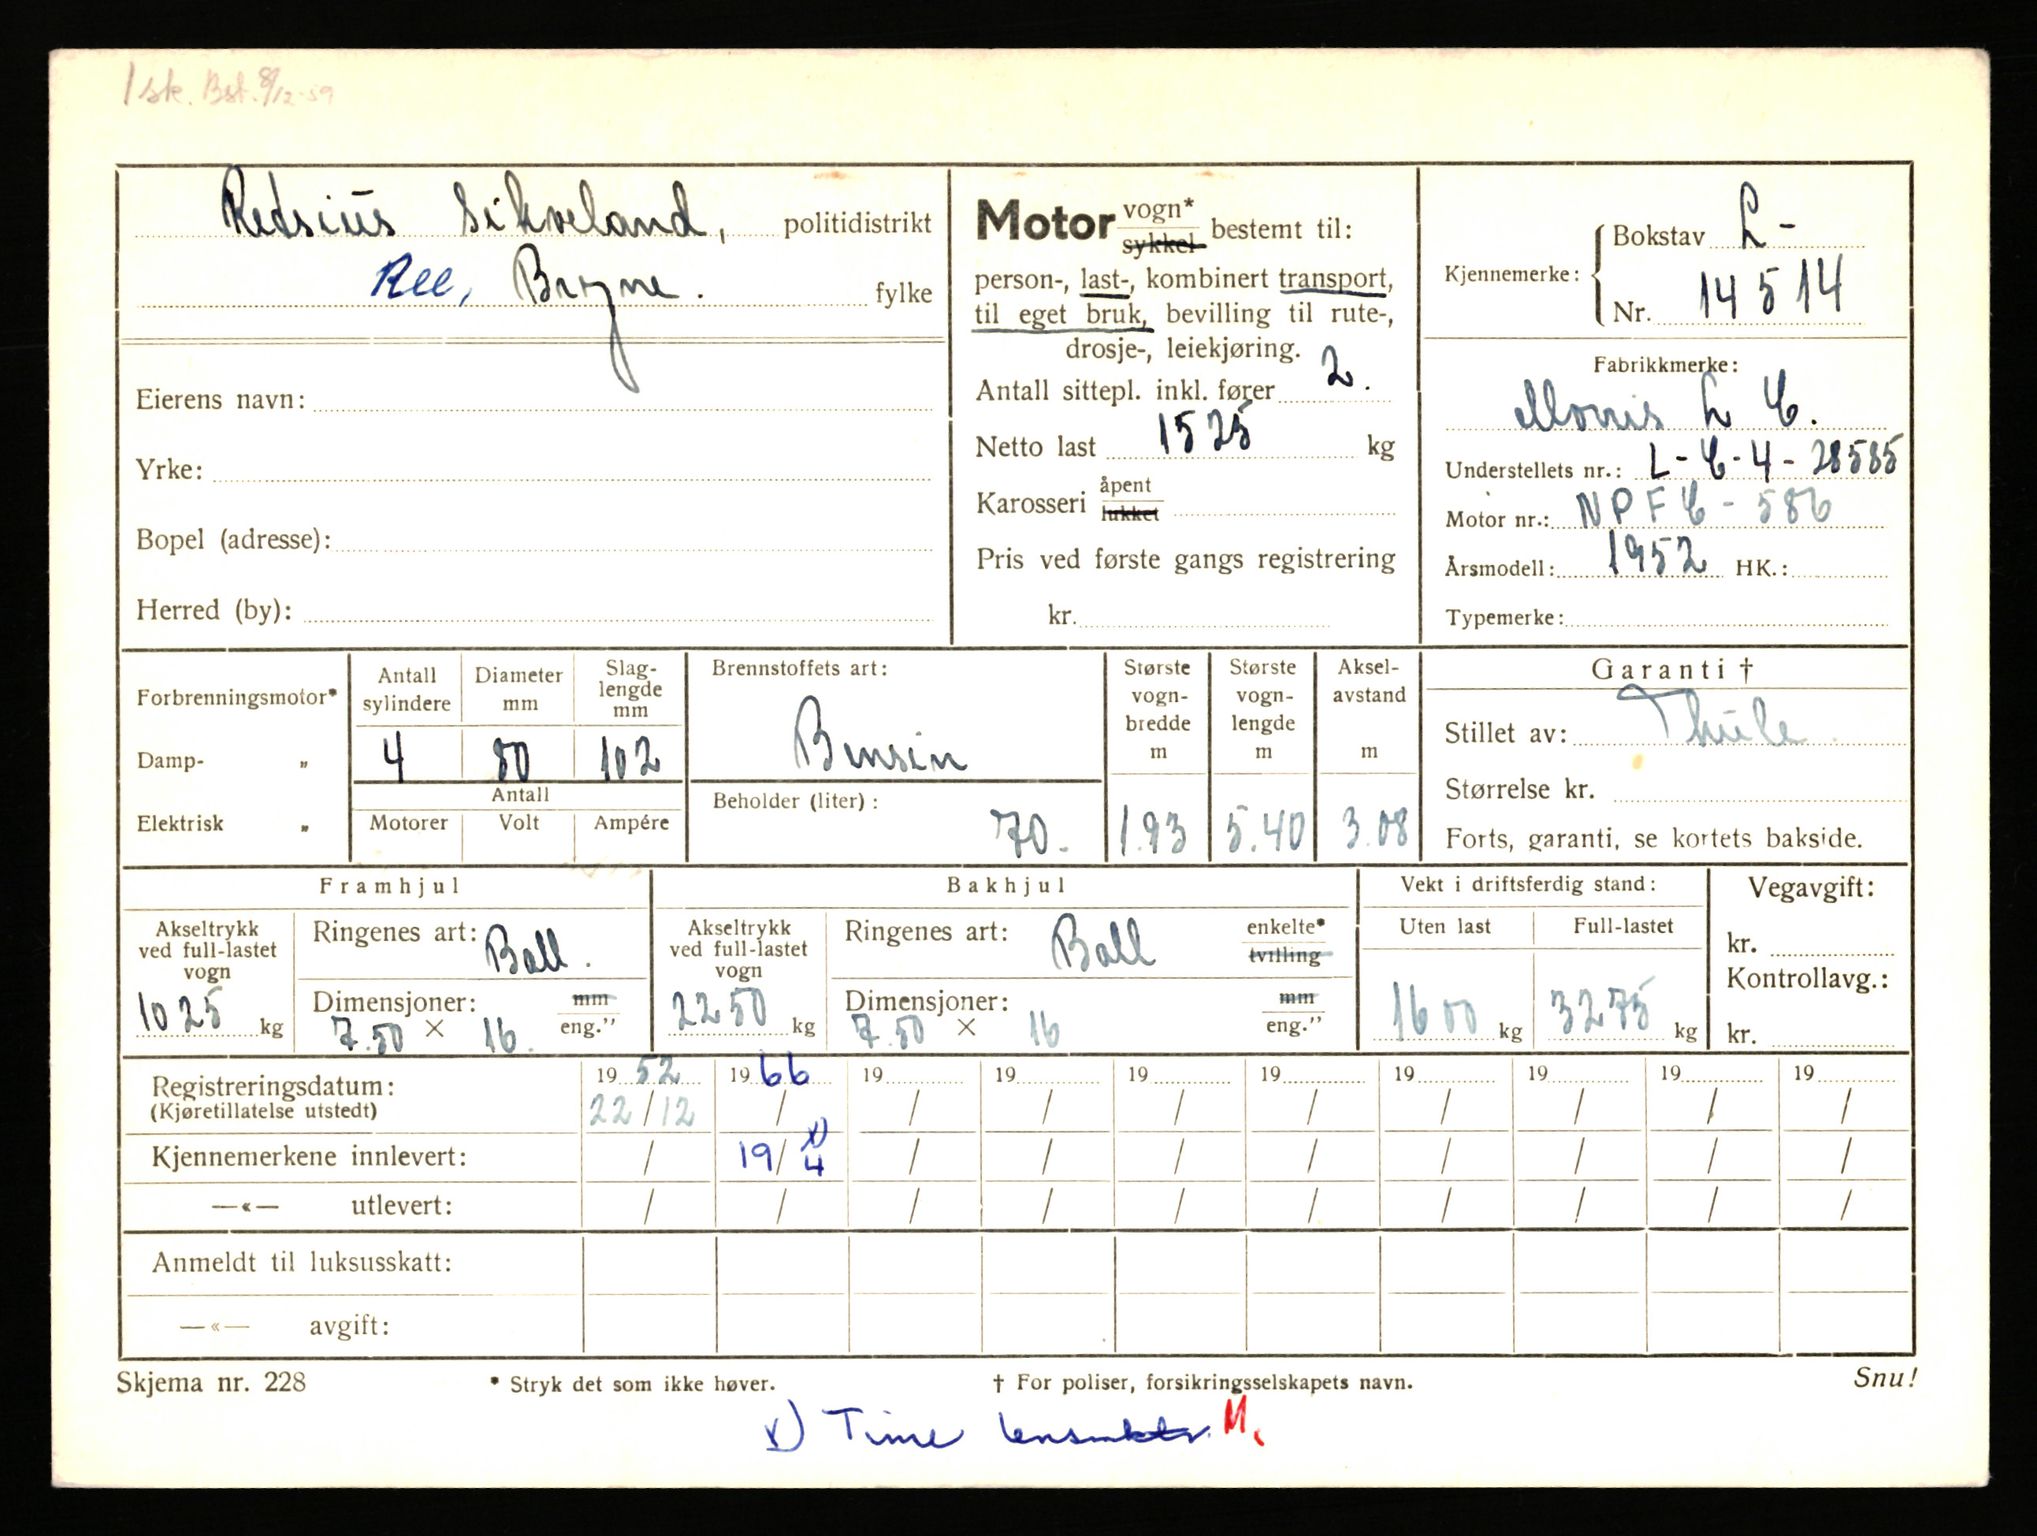 1 sk. Bst. 8/12-59
Retsius Sikveland, politidistrikt
Ree, Bryne. fylke
Eierens navn:
Yrke:
Bopel (adresse):
Herred (by):
Motor vogn* sykkel bestemt til:
person-, last-, kombinert transport,
til eget bruk, bevilling til rute-,
drosje-, leiekjøring.
Antall sittepl. inkl. fører 2.
Netto last 1525 kg
Karosseri åpent lukket
Pris ved første gangs registrering
kr.
Kjennemerke: Bokstav L-
Nr. 14514
Fabrikkmerke:
Morris L C.
Understellets nr.: L-C-4-28585
Motor nr.: NPFC-586
Årsmodell: 1952 HK.:
Typemerke:
Forbrenningsmotor*
Damp- „
Elektrisk „
Antall sylindere
Diameter mm
Slag-lengde mm
4 80 102
Antall
Motorer Volt Ampére
Brennstoffets art:
Bensin
Beholder (liter):
70.
Største vogn-bredde m
1.93
Største vogn-lengde m
5.40
Aksel-avstand m
3.08
Garanti †
Stillet av: Thule.
Størrelse kr.
Forts, garanti, se kortets bakside.
Framhjul
Akseltrykk ved full-lastet vogn
1025 kg
Ringenes art: Ball.
Dimensjoner: mm
7.50 × 16. eng.”
Bakhjul
Akseltrykk ved full-lastet vogn
2250 kg
Ringenes art: Ball enkelte* tvilling
Dimensjoner: mm
7.50 × 16 eng.”
Vekt i driftsferdig stand:
Uten last Full-lastet
1600 kg 3275 kg
Vegavgift:
kr.
Kontrollavg.:
kr.
Registreringsdatum: 1952 1966 19 19 19 19 19 19 19 19
(Kjøretillatelse utstedt) 22/12 / / / / / / / / /
Kjennemerkene innlevert: / 19/4 x) / / / / / / / /
—«— utlevert: / / / / / / / / / /
Anmeldt til luksusskatt:
—«— avgift:
Skjema nr. 228 * Stryk det som ikke høver. † For poliser, forsikringsselskapets navn. Snu!
x) Time lensmktr. M.